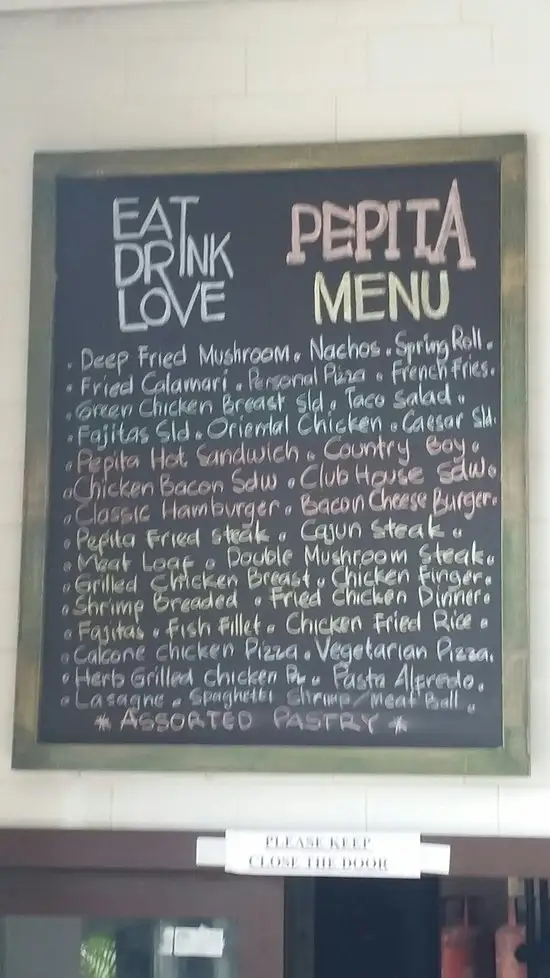 EAT
DRINK
LOVE
PEPITA
MENU
• Deep Fried Mushroom • Nachos • Spring Roll •
• Fried Calamari • Personal Pizza • French Fries •
• Green Chicken Breast Sld • Taco Salad •
• Fajitas Sld • Oriental Chicken • Caesar Sld •
• Pepita Hot Sandwich • Country Boy •
• Chicken Bacon Sdw • Club House Sdw •
• Classic Hamburger • Bacon Cheese Burger •
• Pepita Fried Steak • Cajun Steak •
• Meat Loaf • Double Mushroom Steak •
• Grilled Chicken Breast • Chicken Finger •
• Shrimp Breaded • Fried Chicken Dinner •
• Fajitas • Fish Fillet • Chicken Fried Rice •
• Calcone Chicken Pizza • Vegetarian Pizza •
• Herb Grilled Chicken • Pasta Alfredo •
• Lasagne • Spaghetti Shrimp/Meat Ball •
* ASSORTED PASTRY *
PLEASE KEEP
CLOSE THE DOOR